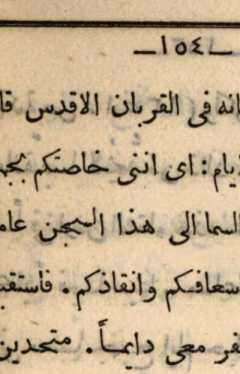 —١٥٤—
انه فى القربان الاقدس
يام: اى اننى خاصتكم
السما الى هذا السجن
سعافكم وانقاذكم. فاستقب
فر معى دايماً. متحدين